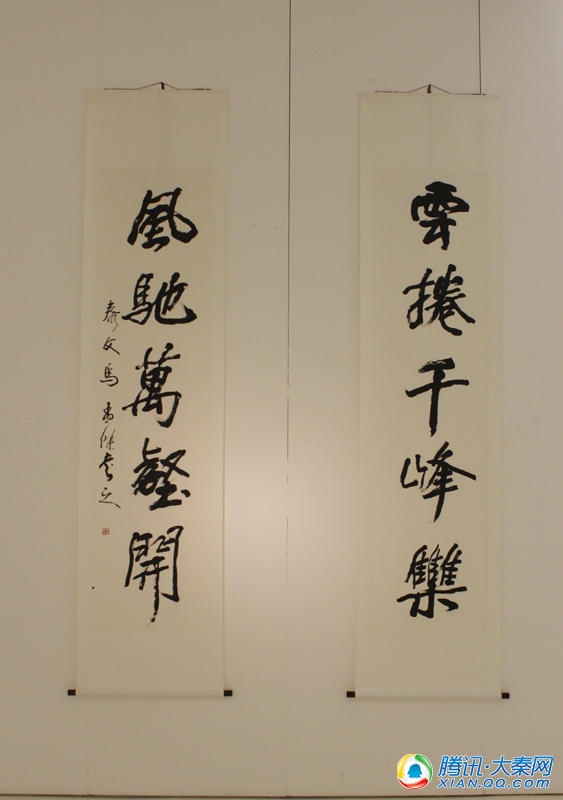 雲捲千峰集
風馳萬壑開
泰文馬
書之
腾讯·大秦网
XIAN.QQ.COM